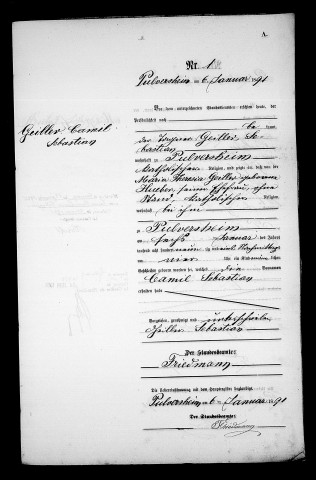 A.
Nr. 1
Pulversheim 6. Januar 91
Geiller Camil
Sebastian
Vor dem unterzeichneten Standesbeamten erschien heute, der
Persönlichkeit nach
be kannt,
der Geiller Se-
bastian
wohnhaft in Pulversheim
katholischer Religion, und zeigte an, daß von der
Maria Theresia Geiller geborenen
Hueber, seiner Ehefrau, ohne
katholischer Religion,
wohnhaft bei ihm
zu Pulversheim
am Januar des Jahres
tausend acht hundert neunzig und Nachmittags
um vier Uhr ein Kind
Geschlechts geboren worden sei, welches die Vornamen
Camil Sebastian
erhalten habe
Vorgelesen, genehmigt und unterschrieben
Geiller Sebastian
Der Standesbeamte:
Friedmann
Die Uebereinstimmung mit dem Hauptregister beglaubigt
Pulversheim 6. Januar 91
Der Standesbeamte:
Friedmann